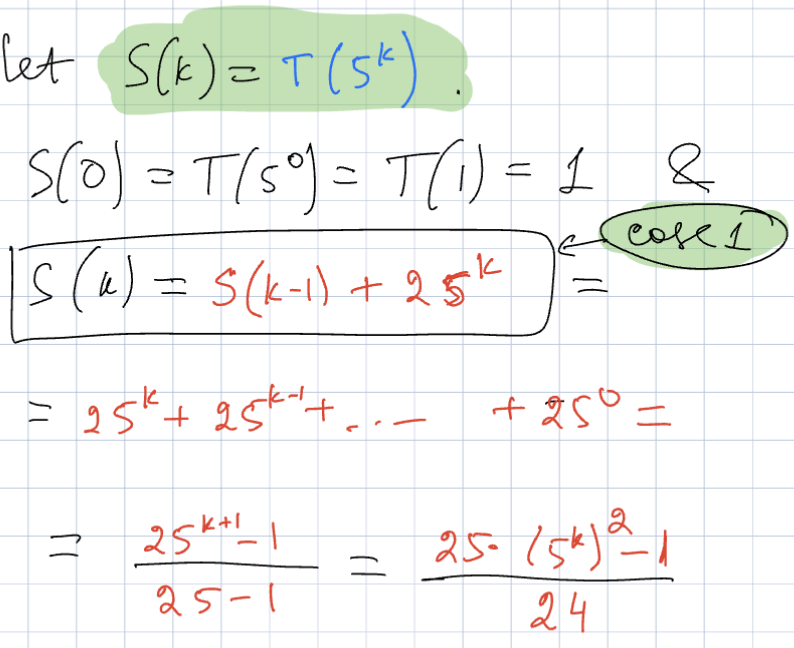 let S(k) = T(5^k).
S(0) = T(5^0) = T(1) = 1 &
case 1
S(k) = S(k-1) + 25^k =
= 25^k + 25^{k-1} + ... + 25^0 =
= \frac{25^{k+1} - 1}{25 - 1} = \frac{25 \cdot (5^k)^2 - 1}{24}